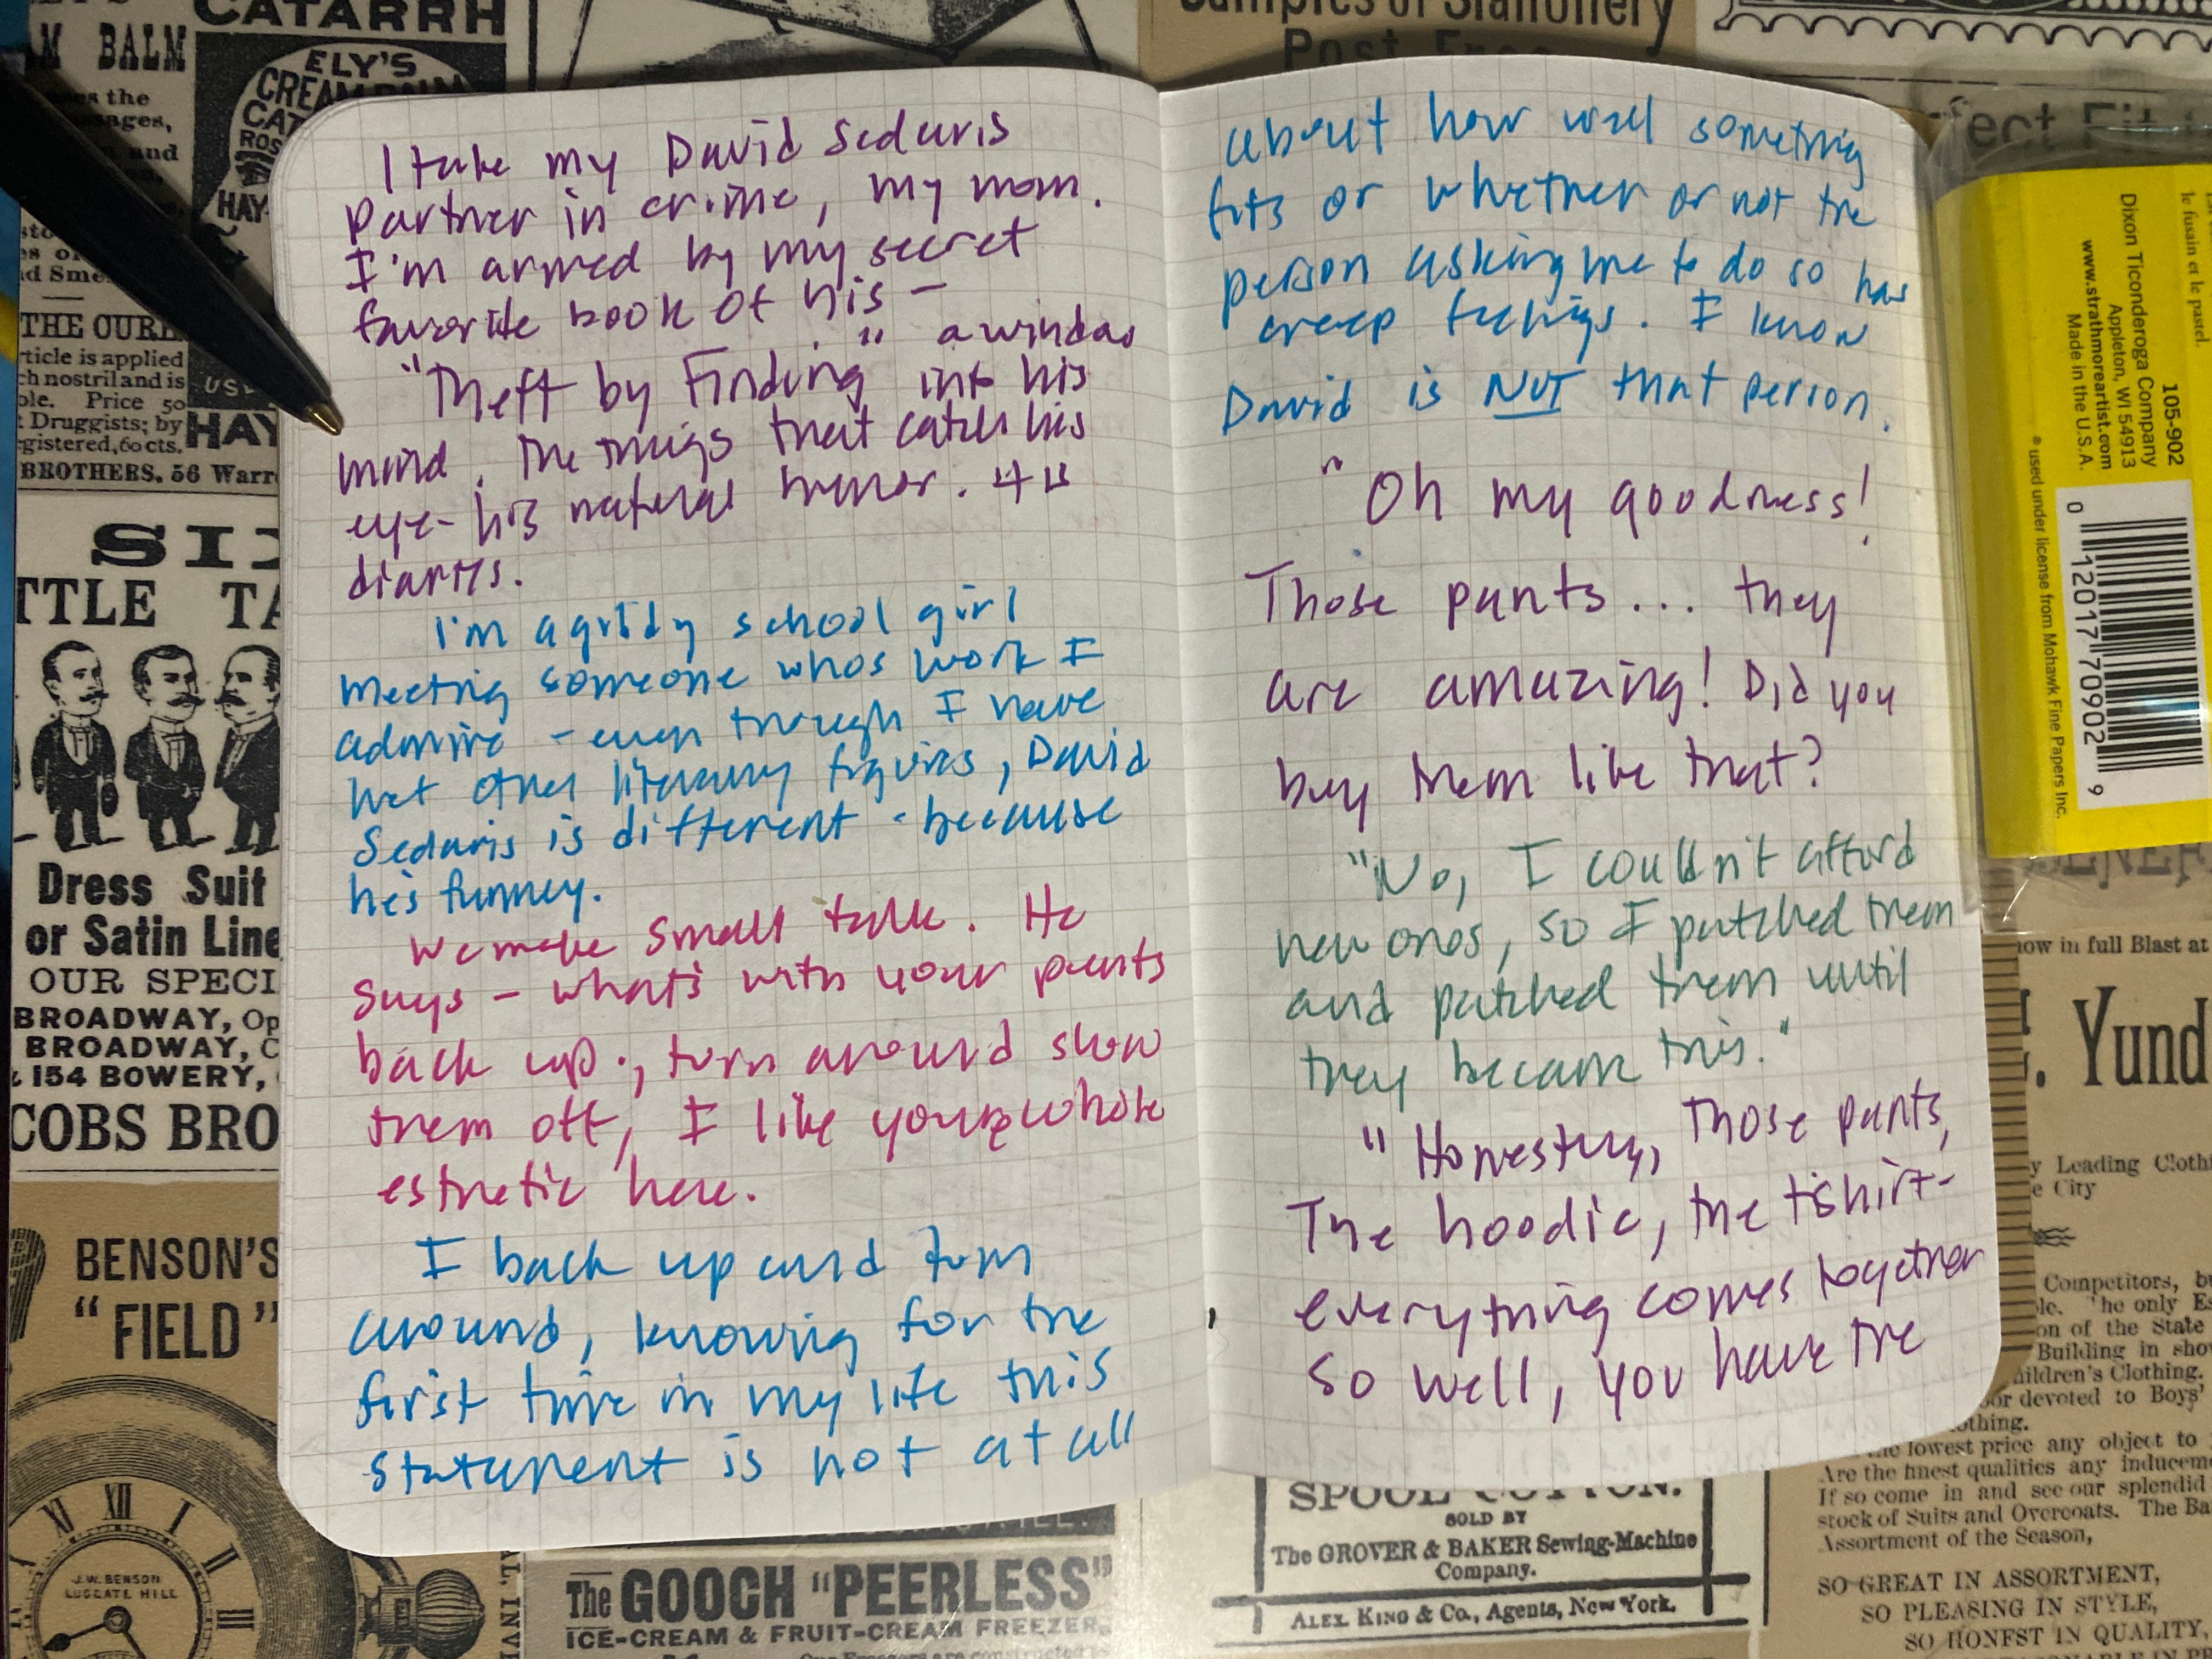 I take my David Sedaris
partner in crime, my mom.
I'm armed by my secret
favorite book of his -
"Theft by Finding," a window
into his
mind. The things that catch his
eye- his natural humor.
diaries.
I'm a giddy school girl
meeting someone whos work I
admire - even though I have
met other literary figures, David
Sedaris is different - because
he's funney.
We make small talk. He
says - what's with your pants
back up., turn around show
them off, I like your whole
esthetic here.
I back up and turn
around, knowing for the
first time in my life this
statement is not at all
about how well something
fits or whether or not the
person asking me to do so has
creep feelings. I know
David is NOT that person.
"Oh my goodness!
Those pants... they
are amazing! Did you
buy them like that?
"No, I couldn't afford
new ones, so I patched them
and patched them until
they became this."
"Honestly, those pants,
The hoodie, the tshirt-
everything comes together
so well, you have the
CATARRH
BALM
ELY'S
CREAM BALM
HAY
THE CURE
article is applied
nostril and is
Price 50
Druggists; by
registered, 60 cts.
BROTHERS, 56 Warr
HAY
Dress Suit
or Satin Line
OUR SPECI
BROADWAY, Op
BROADWAY, C
154 BOWERY,
COBS BRO
BENSON'S
"FIELD"
J.W. BENSON
LUDGATE HILL
XI XII I II III
The GOOCH "PEERLESS"
ICE-CREAM & FRUIT-CREAM FREEZER
Samples of Stationery
Post Free
le fusain et le pastel.
105-902
Dixon Ticonderoga Company
Appleton, WI 54913
www.strathmoreartist.com
Made in the U.S.A.
* used under license from Mohawk Fine Papers Inc.
0 12017 70902 9
now in full Blast at
Yund
Leading Cloth
City
Competitors,
he only
on of the State
Building in
Children's Clothing.
devoted to Boys'
lowest price any object to
Are the finest qualities any induceme
If so come in and see our splendid
stock of Suits and Overcoats. The
Assortment of the Season,
SO GREAT IN ASSORTMENT,
SO PLEASING IN STYLE,
SO HONEST IN QUALITY,
SPOOL COTTON.
SOLD BY
The GROVER & BAKER Sewing-Machine
Company.
ALEX KING & Co., Agents, New York.